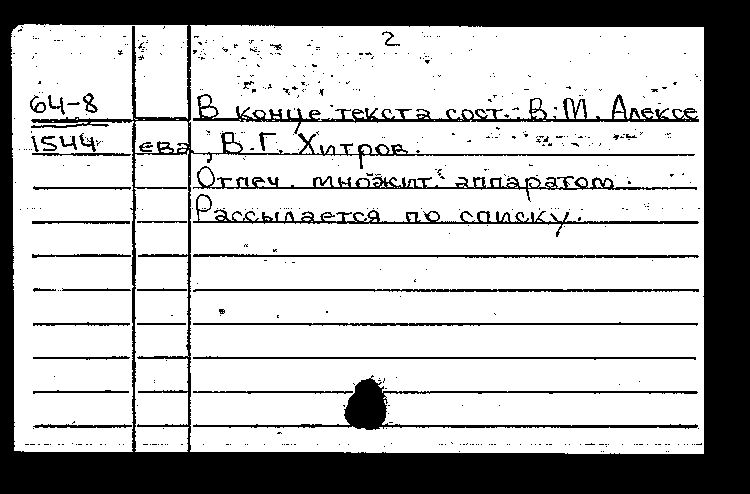 2
64-8 В конце текста сост.: В.М. Алексе
1544 ева, В.Г. Хитров.
Отпеч. множит. аппаратом.
Рассылается по списку.